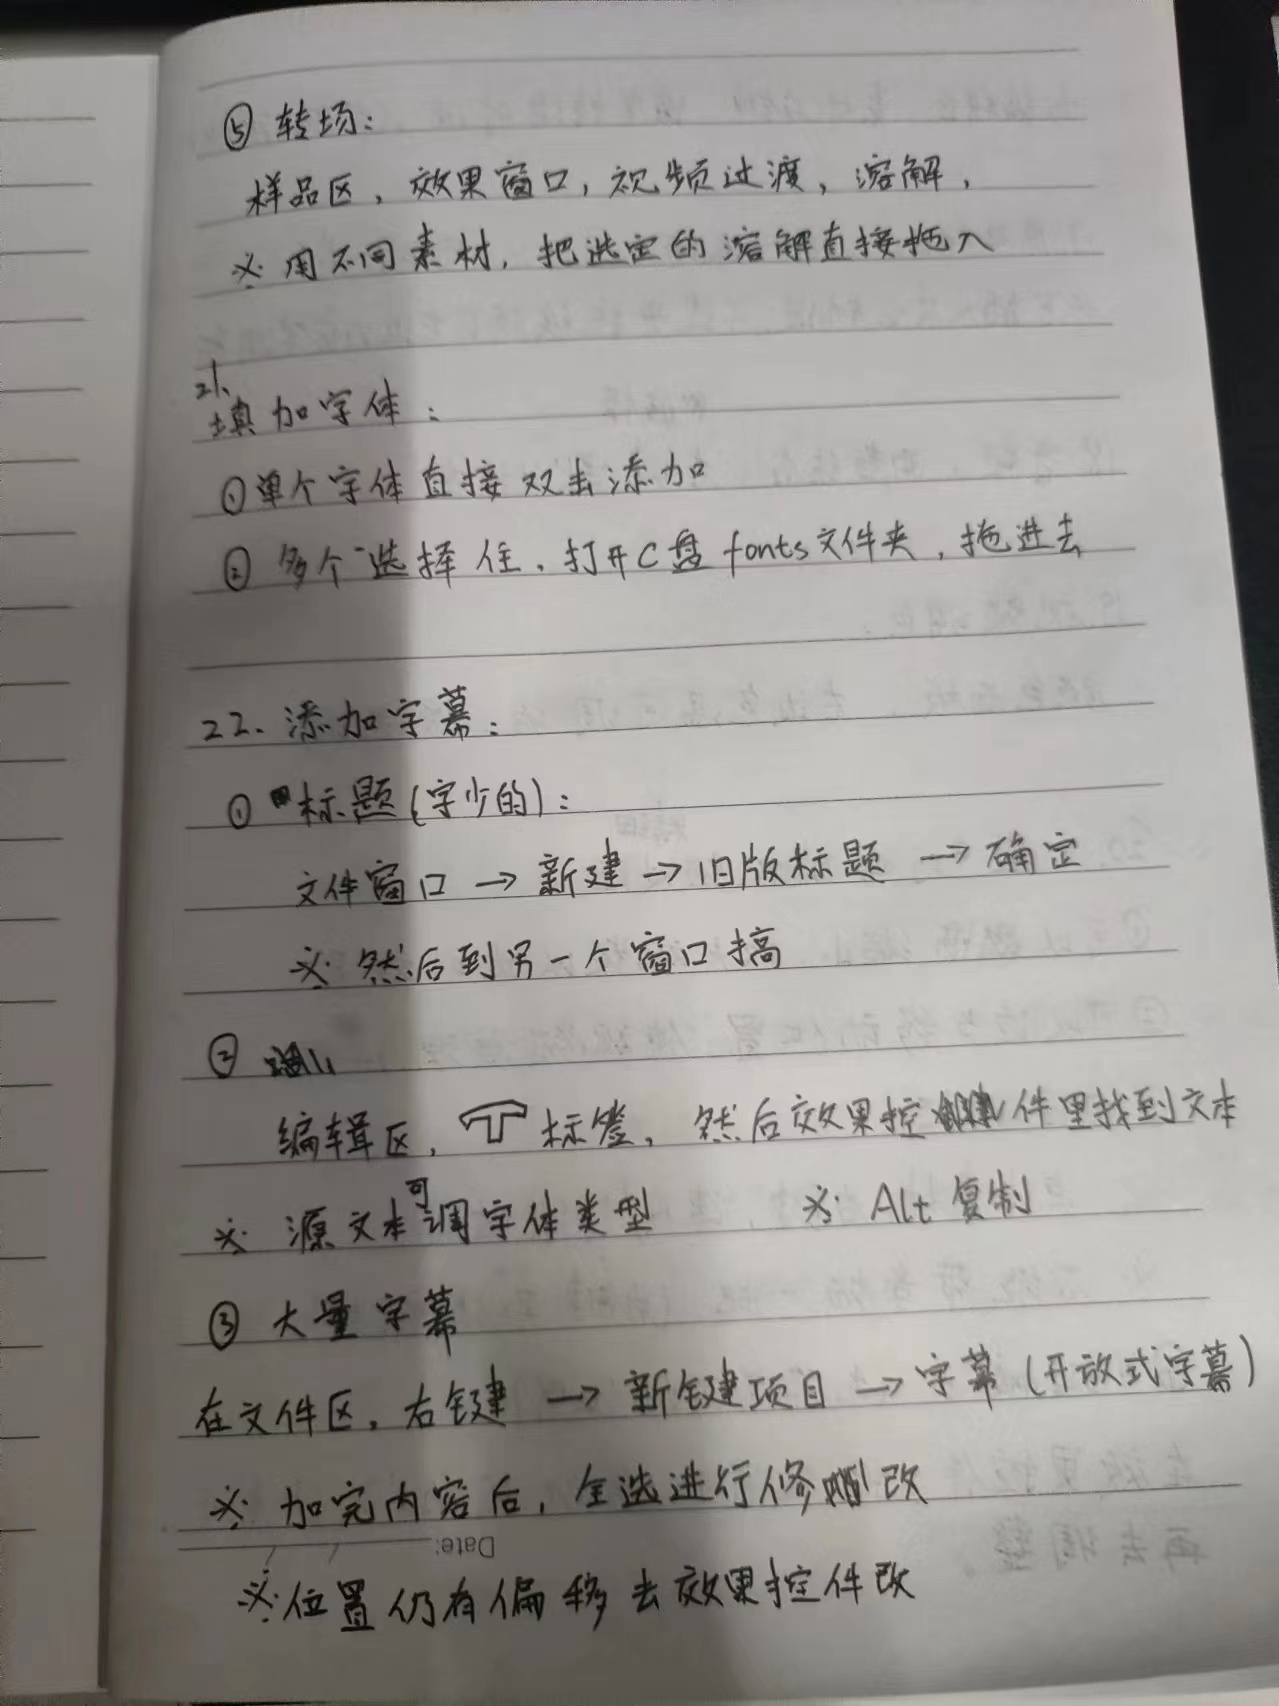 ⑤ 转场：
样品区，效果窗口，视频过渡，溶解，
※ 用不同素材，把选定的溶解直接拖入
21、
填加字体：
①单个字体直接双击添加
② 多个选择住，打开C盘fonts文件夹，拖进去
22、添加字幕：
① 标题(字少的)：
文件窗口→新建→旧版标题→确定
※ 然后到另一个窗口搞
②
编辑区，T标签，然后效果控件里找到文本
※ 源文本可调字体类型 ※ Alt复制
③ 大量字幕
在文件区，右键→新键项目→字幕(开放式字幕)
※ 加完内容后，全选进行修改
Date:
※ 位置仍有偏移去效果控件改